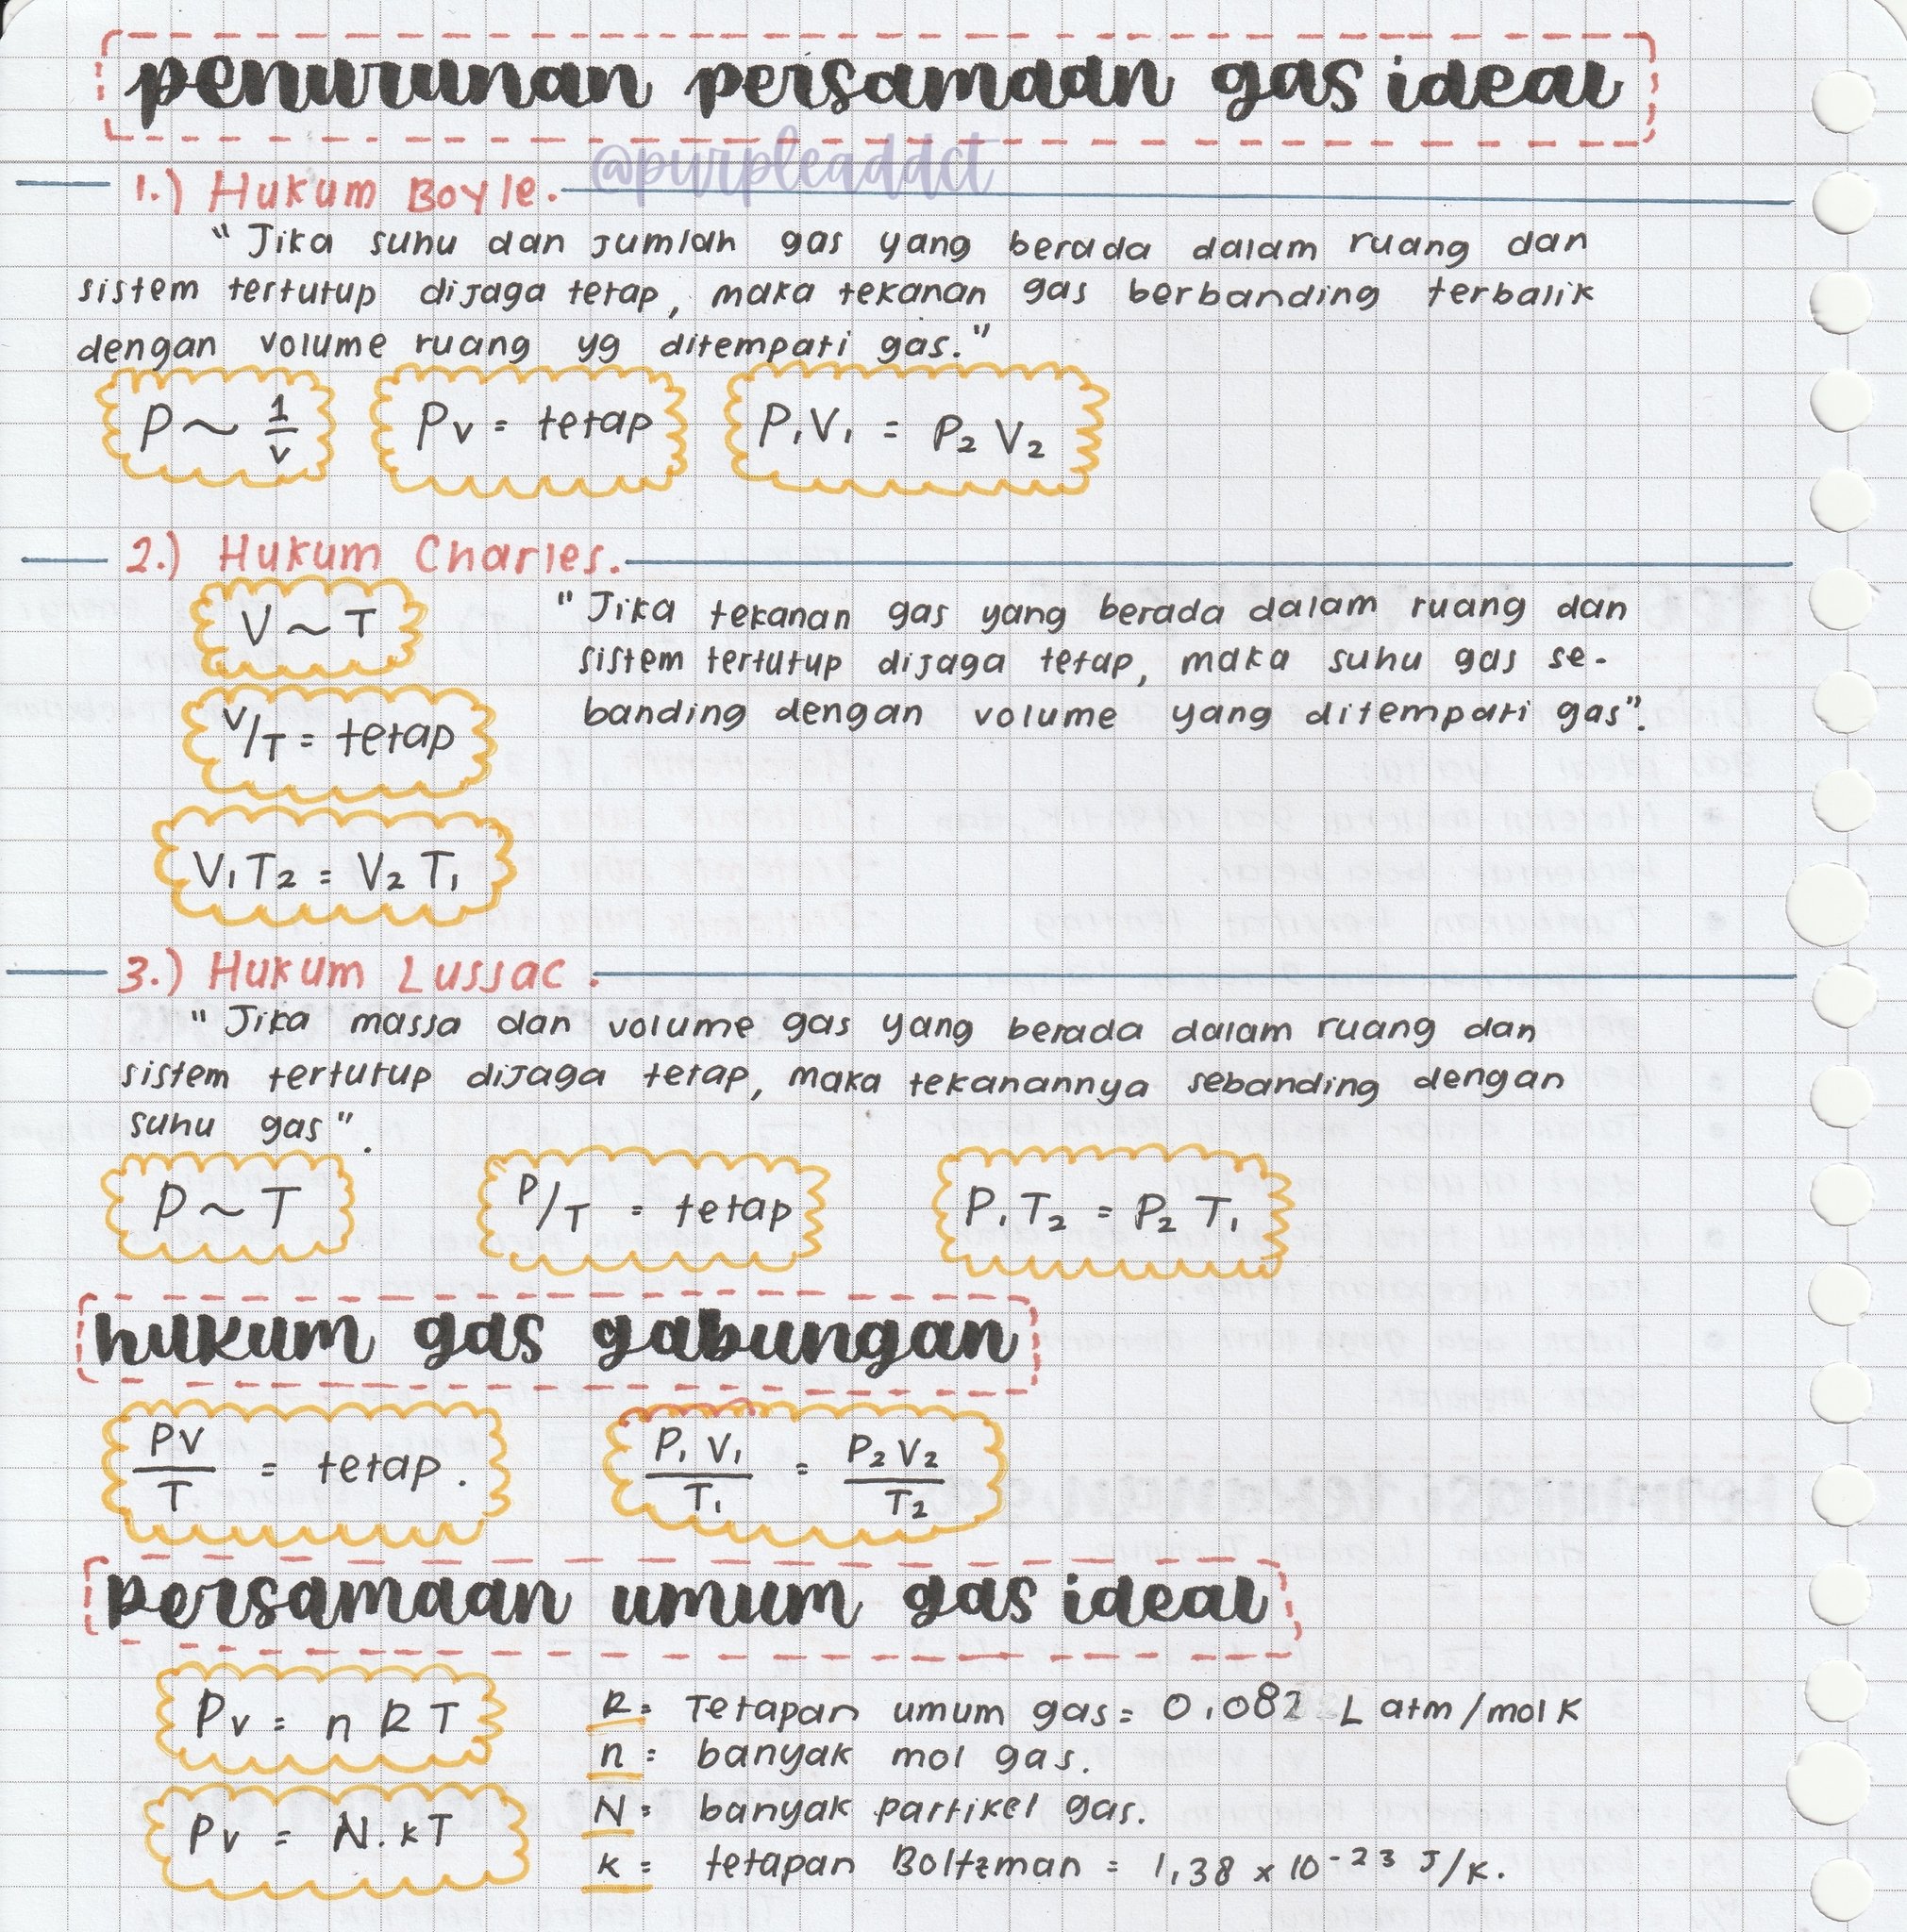 penurunan persamaan gas ideal
@purpleaddct
1.) Hukum Boyle.
"Jika suhu dan jumlah gas yang berada dalam ruang dan
sistem tertutup dijaga tetap, maka tekanan gas berbanding terbalik
dengan volume ruang yg ditempati gas."
P ~ 1/V
PV = tetap
P₁V₁ = P₂V₂
2.) Hukum Charles.
V ~ T
V/T = tetap
V₁T₂ = V₂T₁
"Jika tekanan gas yang berada dalam ruang dan
sistem tertutup dijaga tetap, maka suhu gas se-
banding dengan volume yang ditempati gas".
3.) Hukum Lussac.
"Jika massa dan volume gas yang berada dalam ruang dan
sistem tertutup dijaga tetap, maka tekanannya sebanding dengan
suhu gas".
P ~ T
P/T = tetap
P₁T₂ = P₂T₁
hukum gas gabungan
PV/T = tetap.
P₁V₁/T₁ = P₂V₂/T₂
persamaan umum gas ideal
PV = n R T
PV = N.kT
R = Tetapan umum gas = 0,082 L atm/mol K
n = banyak mol gas.
N = banyak partikel gas.
k = tetapan Boltzman = 1,38 x 10⁻²³ J/K.